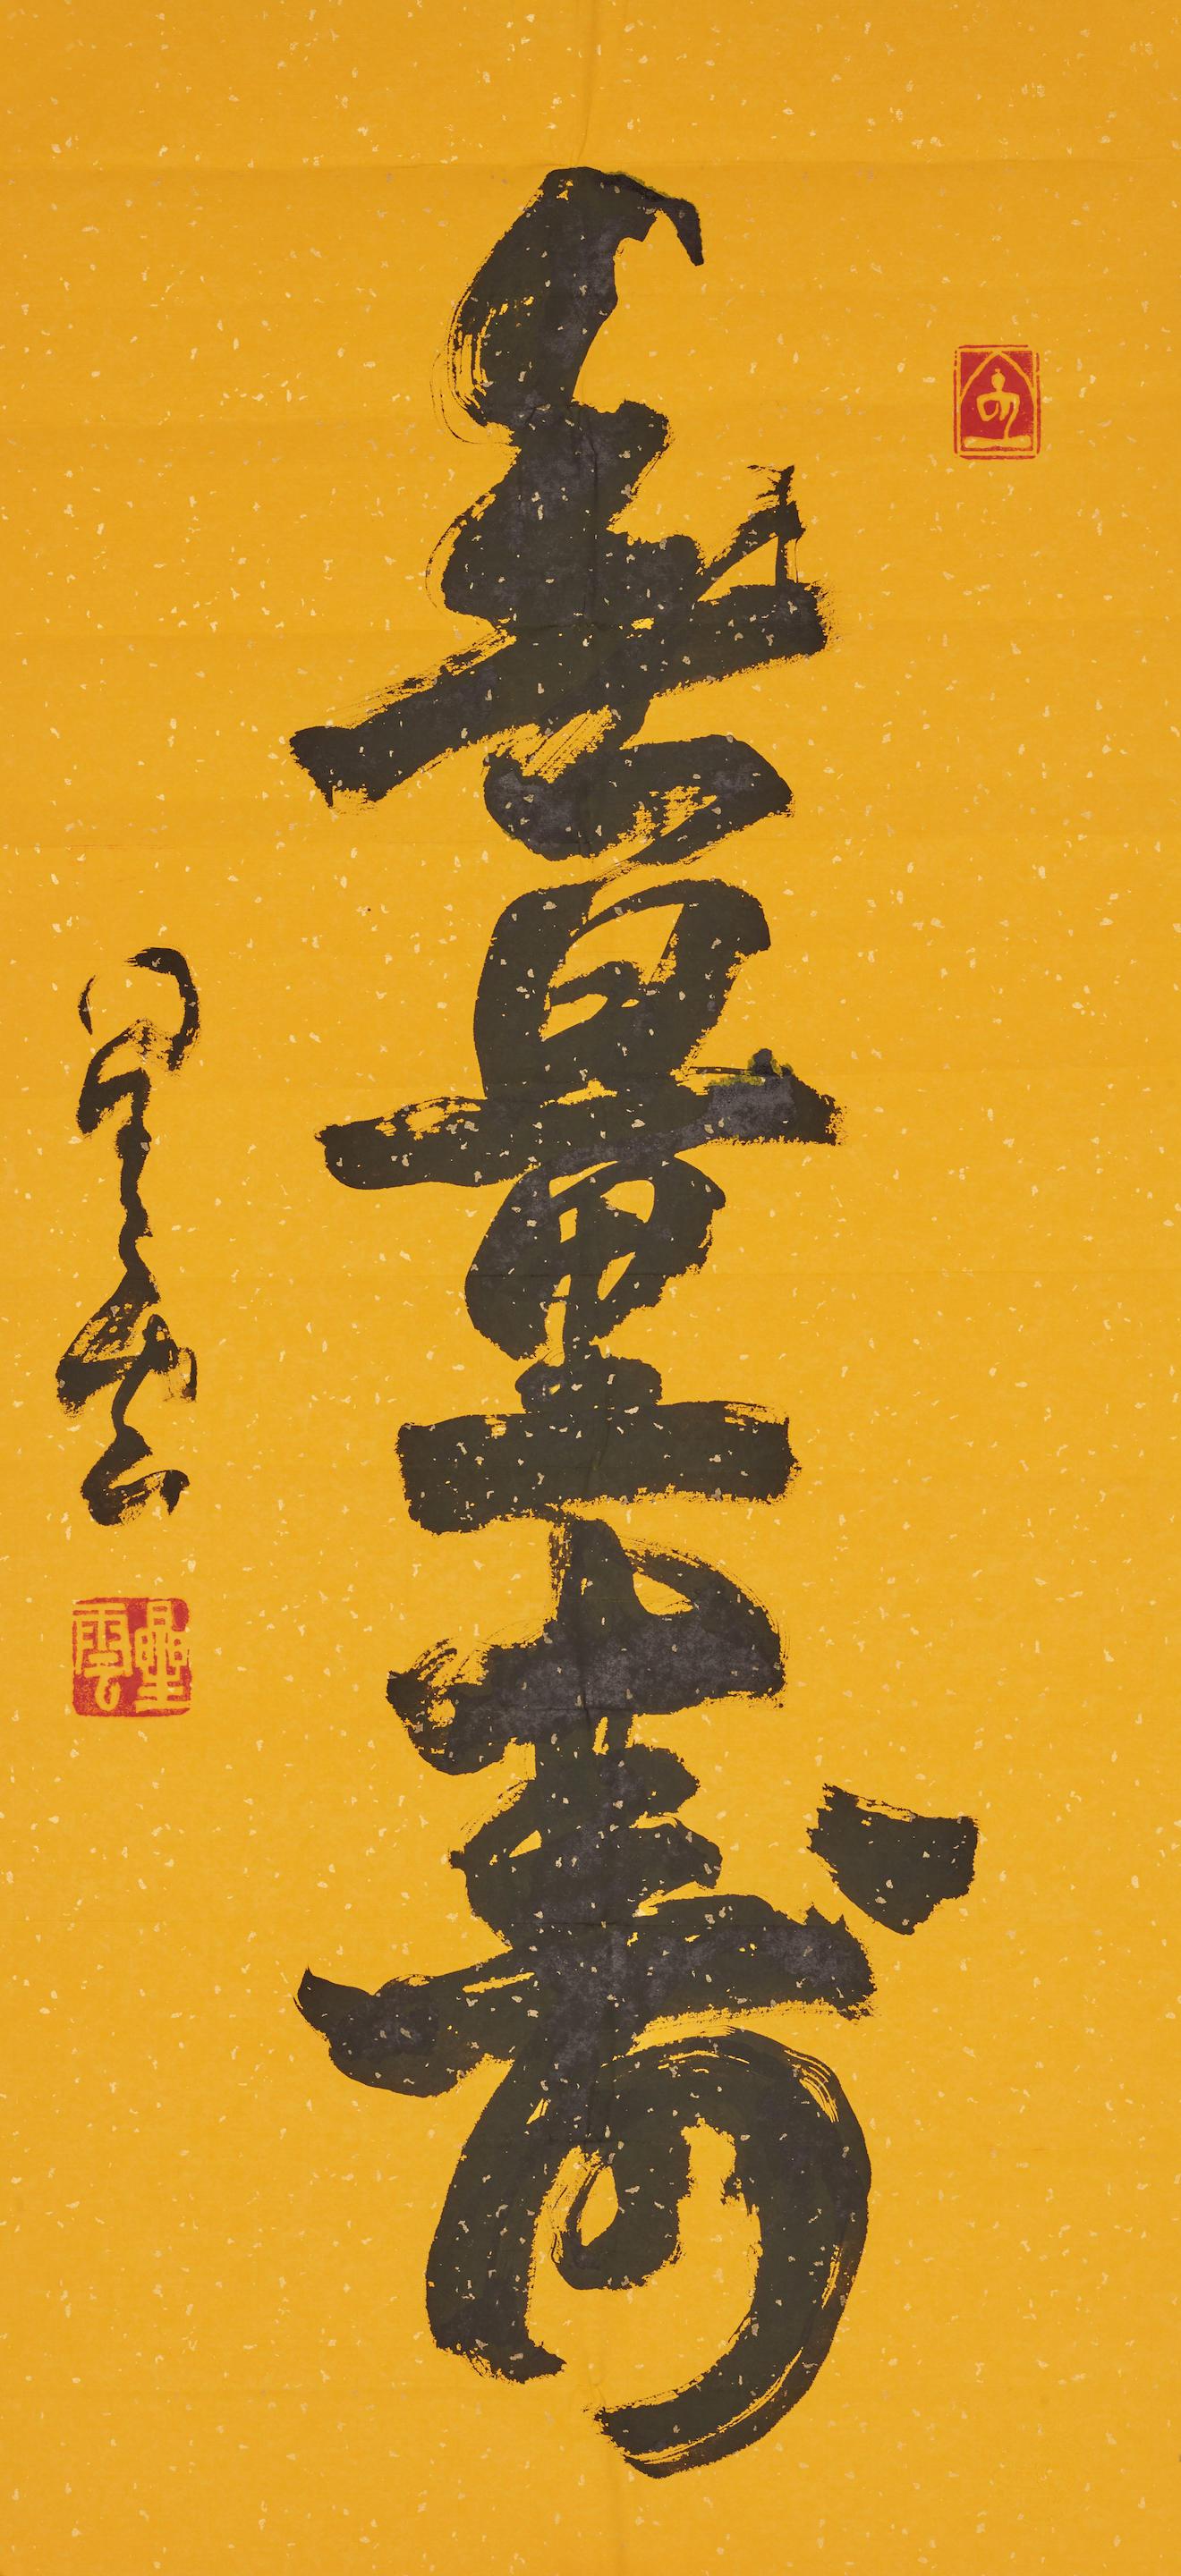 無量壽
星雲
星雲